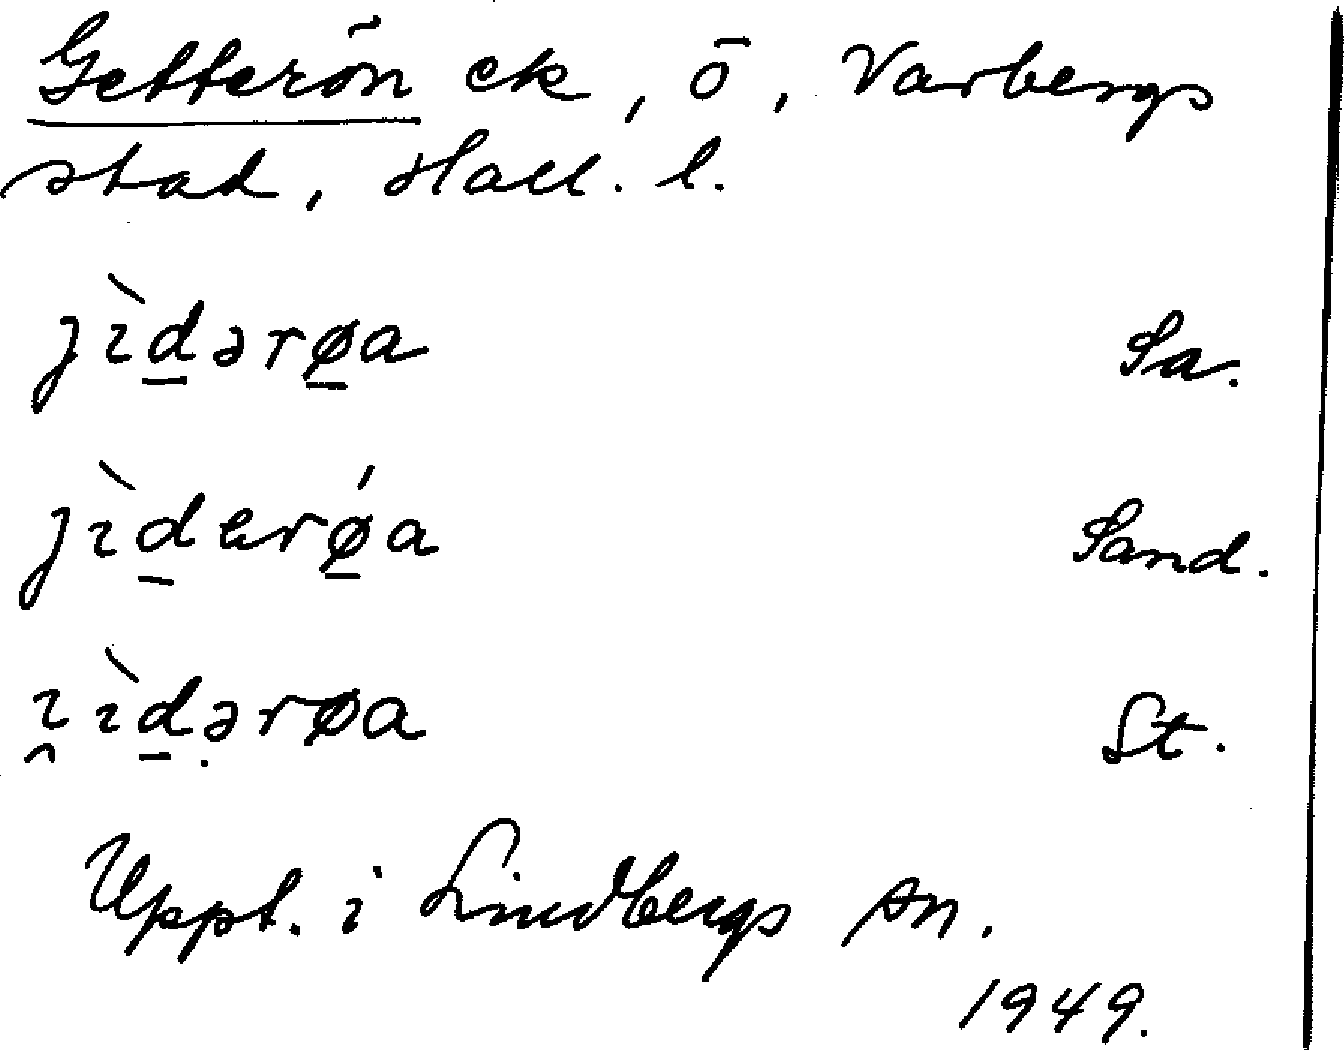 Getterön ek, ö, Varbergs
stad, Hall. l.
jìd̠ərø̠a Sa.
jìd̠ɐrǿ̠a Sand.
ɪ̯ìd̠ə̣røa St.
Uppt. i Lindbergs sn.
1949.